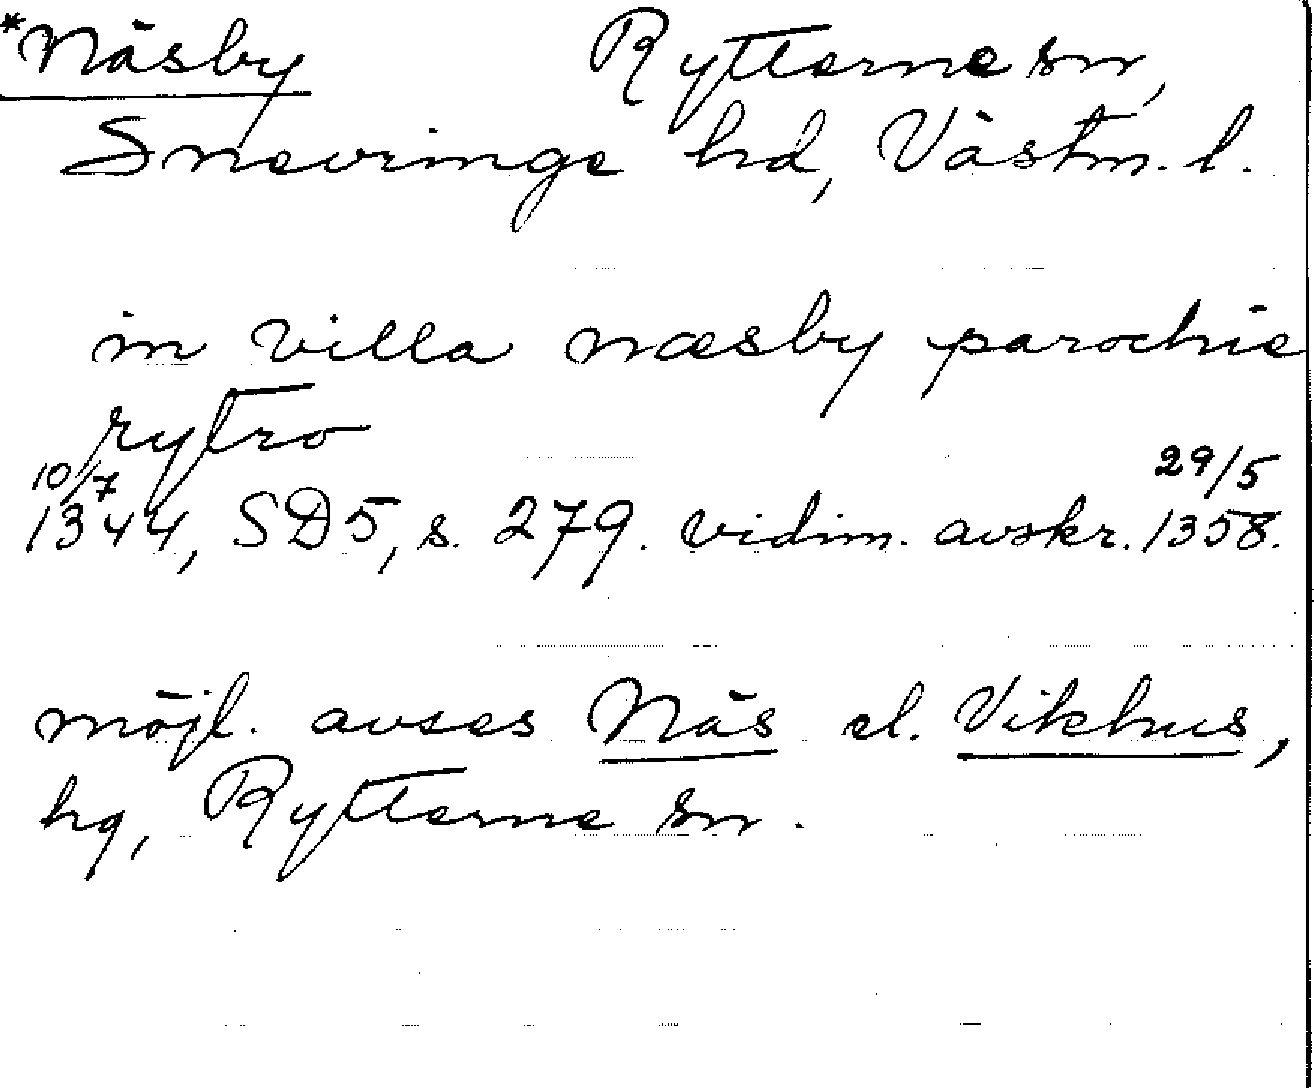 *Näsby Rytterne sn,
Snevringe hd, Västm. l.
in villa næsby parochie
rytro
10/7 29/5
1344, SD5, s. 279. vidim. avskr. 1358.
möjl. avses Näs el. Vikhus,
hg, Rytterne sn.